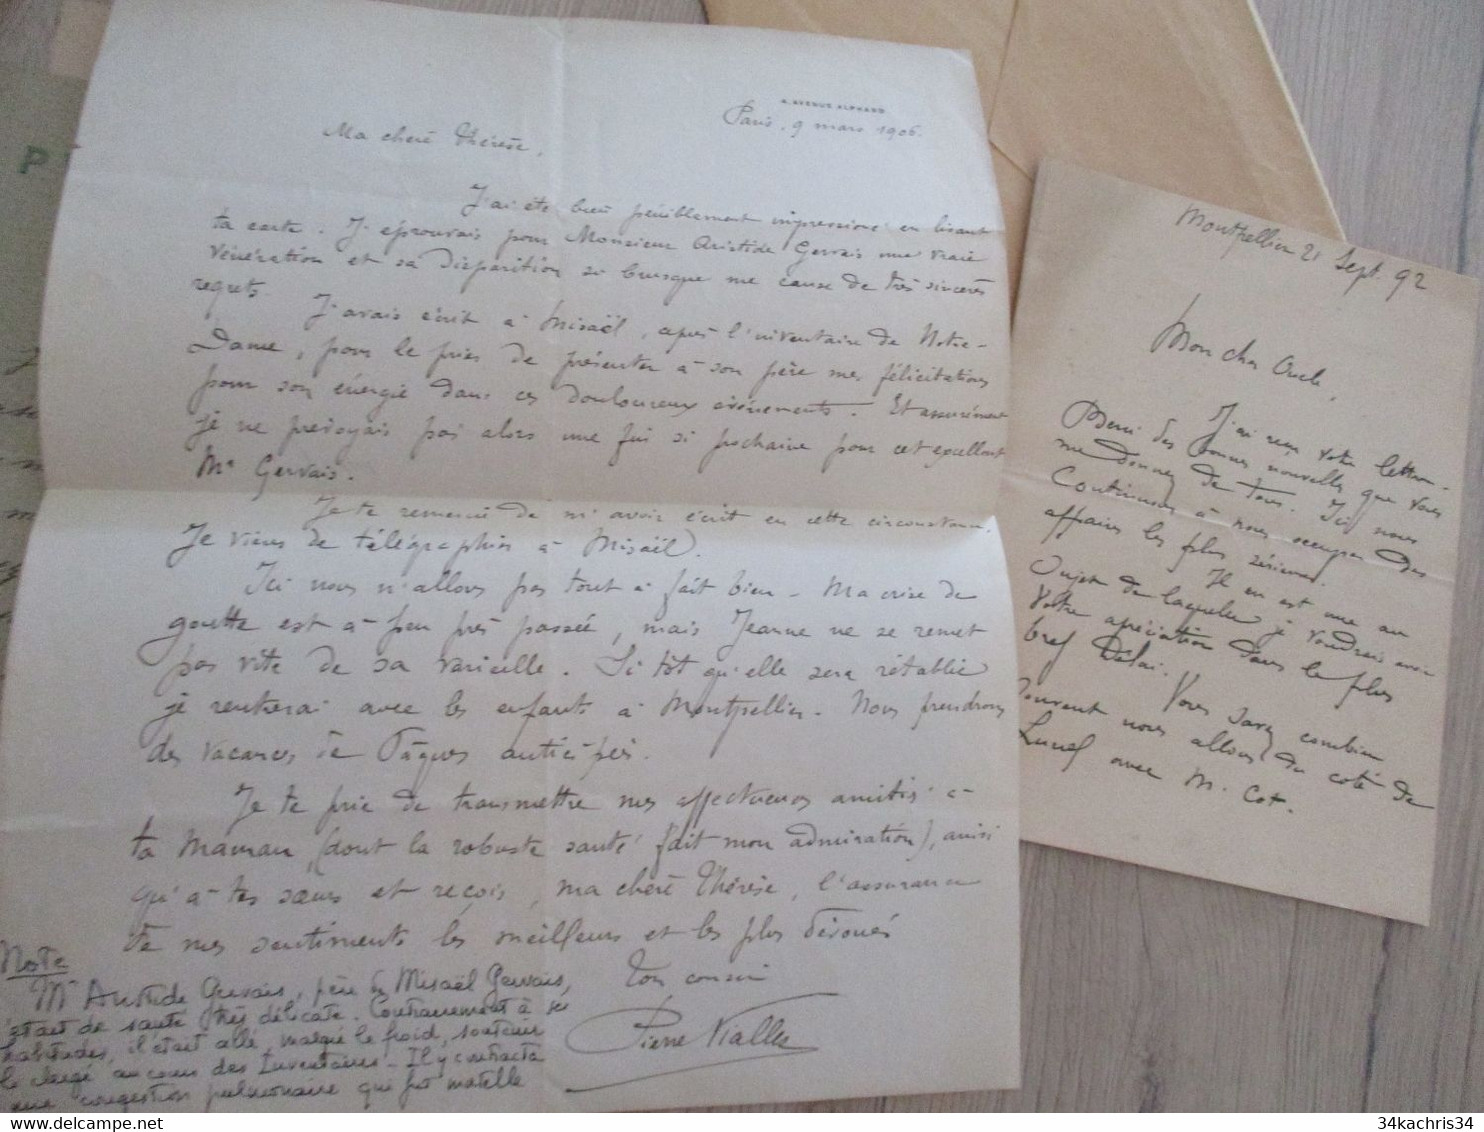 4. AVENUE ALPHAND
Paris, 9 mars 1906.
Ma chère Thérèse,
J'ai été bien péniblement impressionné en lisant
ta carte. J'éprouvais pour Monsieur Aristide Gervais une vraie
vénération et sa disparition si brusque me cause de très sincères
regrets.
J'avais écrit à Misaël, après l'inventaire de Notre-
Dame, pour le prier de présenter à son père mes félicitations
pour son énergie dans ces douloureux événements. Et assurément
je ne prévoyais pas alors une fin si prochaine pour cet excellent
Mr Gervais.
Je te remercie de m'avoir écrit en cette circonstance.
Je viens de télégraphier à Misaël.
Ici nous n'allons pas tout à fait bien - Ma crise de
goutte est à peu près passée, mais Jeanne ne se remet
pas vite de sa varicelle. Si tôt qu'elle sera rétablie
je rentrerai avec les enfants à Montpellier. Nous prendrons
des vacances de Pâques anticipées.
Je te prie de transmettre mes affectueuses amitiés à
ta Maman (dont la robuste santé fait mon admiration), ainsi
qu'à tes sœurs et reçois, ma chère Thérèse, l'assurance
de mes sentiments les meilleurs et les plus dévoués
Ton cousin
Pierre Vialles
Note
Mr Aristide Gervais, père de Misaël Gervais,
était de santé très délicate. Contrairement à ses
habitudes, il était allé, malgré le froid, soutenir
le clergé au cours des Inventaires - Il y contracta
une congestion pulmonaire qui fut mortelle
P
Montpellier 21 Sept. 92
Mon cher Oncle,
J'ai reçu votre lettre.
Merci des bonnes nouvelles que vous
me donnez de tous. Ici nous
Continuons à nous occuper des
affaires les plus sérieuses.
Il en est une au
Sujet de laquelle je voudrais avoir
Votre apréciation dans le plus
bref Délai.
Vous savez combien
Souvent nous allons du coté de
Lunel avec M. Cot.
34kachris34